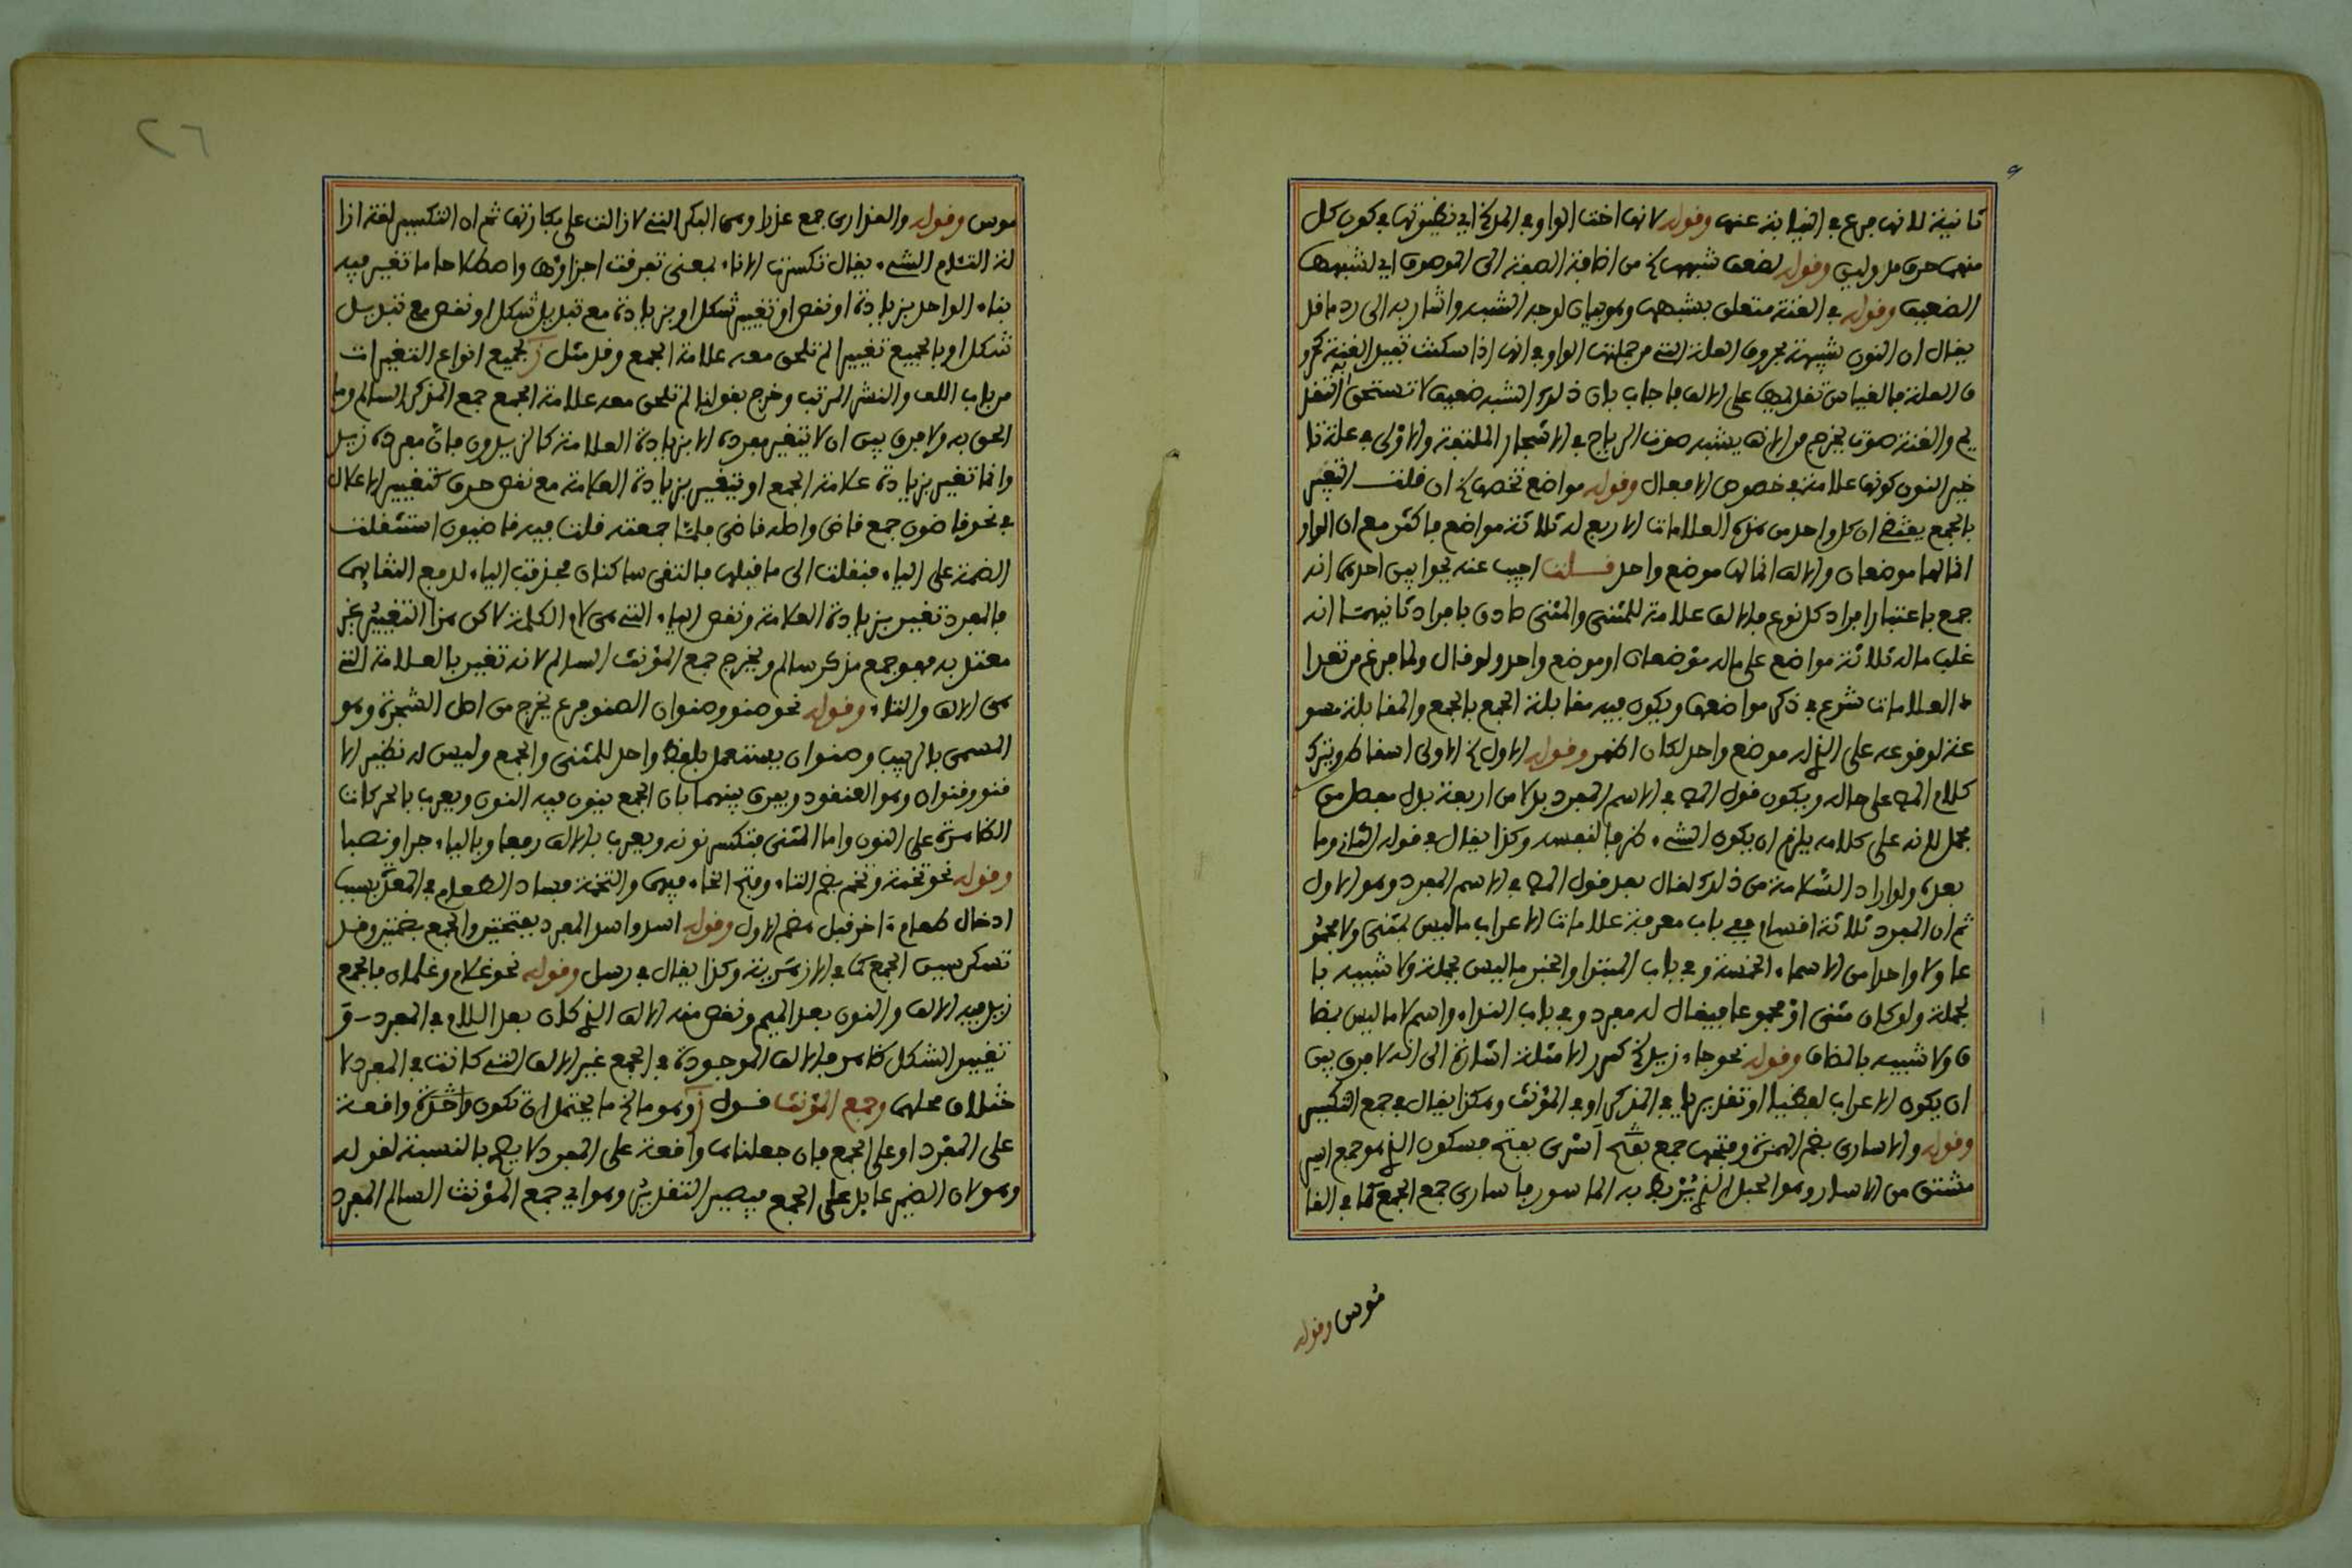 ثانية لانها فرع في النيابة عنها وقوله لانها اختا الواو في المد الخ اي نظيرتها في كون كل
منهما حرف مد ولين وقوله لضعف شبهها الخ من اضافة الصفة الى الموصوف اي لشبهها
الضعيف وقوله في الغنة متعلق بشبهها وهو بيان لوجه الشبه واشار به الى رد ما قد
يقال ان النون شبيهة بحروف العلة التي من جملتها الواو في انها اذا سكنت تقبل الغنة كحرو
ف العلة فالقياس تقديمها على الالف فاجاب بان ذلك الشبه ضعيف لا تستحق به التقد
يم والغنة صوت يخرج من الانف يشبه صوت الرياح في الاشجار الملتفة والاولى في علة تا
خير النون كونها علامة في خصوص الافعال وقوله مواضع تخصها الخ ان قلت التعبير
بالجمع يقتضي ان كل واحد من هذه العلامات الاربع له ثلاثة مواضع فاكثر مع ان الواو
انما لها موضعان والالف انما لها موضع واحد قلت اجيب عنه بجوابين احدهما انه
جمع باعتبار افراد كل نوع فالالف علامة للمثنى والمثنى صادق بافراد ثانيهما انه
غلب ما له ثلاثة مواضع على ما له موضعان او موضع واحد ولو قال ولما فرغ من تعدا
د العلامات شرع في ذكر مواضعها ويكون فيه مقابلة الجمع بالجمع والمقابلة مسو
غة لوقوعه على الذي له موضع واحد لكان اظهر وقوله الاول الخ الاولى اسقاطه ويترك
كلام المص على حاله ويكون قول المص في الاسم المفرد بدلا من اربعة بدل مفصل من
مجمل لانه على كلامه يلزم ان يكون الشيء ظرفا لنفسه وكذا يقال في قوله الثاني وما
بعده ولو اراد السلامة من ذلك لقال بعد قول المص في الاسم المفرد وهو الاول
ثم ان المفرد ثلاثة اقسام ففي باب معرفة علامات الاعراب ما ليس بمثنى ولا مجمو
عا ولا واحدا من الاسماء الخمسة وفي باب المبتدا والخبر ما ليس بجملة ولا شبيه با
لجملة ولو كان مثنى او مجموعا فيقال له مفرد وفي باب النداء واسم لا ما ليس بمضا
ف ولا شبيه بالمضاف وقوله نحو جاء زيد الخ كرر الامثلة اشارة الى انه لا فرق بين
ان يكون الاعراب لفظيا او تقديريا في المذكر او في المؤنث وهكذا يقال في جمع التكسير
وقوله والاسارى بضم الهمزة وفتحها جمع اسرى بفتح فسكون الذي هو جمع اسير
مشتق من الاسار وهو الحبل الذي يربط به الماسور فاسارى جمع الجمع كما في القا
موس وقوله
موس وقوله والعذارى جمع عذراء وهي البكر التي لا زالت على بكارتها ثم ان التكسير لغة ازا
لة التئام الشيء يقال تكسرت الاناء بمعنى تفرقت اجزاؤها واصطلاحا ما تغير فيه
بناء الواحد بزيادة او نقص او تغيير شكل او بزيادة مع تبديل شكل او نقص مع تبديل
شكل او بالجميع تغييرا لم تلحق معه علامة الجمع وقد مثل ز لجميع انواع التغيرات
من باب اللف والنشر المرتب وخرج بقولنا لم تلحق معه علامة الجمع جمع المذكر السالم وما
الحق به ولا فرق بين ان لا يتغير مفرده الا بزيادة العلامة كالزيدون فان مفرده زيد
وانما تغير بزيادة علامة الجمع او يتغير بزيادة العلامة مع نقص حرف كتغيير الاعلال
في نحو قاضون جمع قاض واصله قاضي فلما جمعته قلت فيه قاضيون استثقلت
الضمة على الياء فنقلت الى ما قبلها فالتقى ساكنان فحذفت الياء لدفع التقائهما
فالمفرد تغير بزيادة العلامة ونقص الياء التي هي لام الكلمة لاكن هذا التغيير غير
معتد به فهو جمع مذكر سالم ويخرج جمع المؤنث السالم لانه تغير بالعلامة التي
هي الالف والتاء وقوله نحو صنو وصنوان الصنو فرع يخرج من اصل الشجرة وهو
المسمى وصنوان يستعمل بلفظ واحد للمثنى والجمع وليس له نظير الا
قنو وقنوان وهو العنقود ويفرق بينهما بان الجمع ينون فيه النون ويعرب بالحركات
الظاهرة على النون واما المثنى فتكسر نونه ويعرب بالالف رفعا وبالياء جرا ونصبا
وقوله نحو تخمة وتخم بضم التاء وفتح الخاء فيهما والتخمة فساد الطعام في المعدة بسبب
ادخال طعام اخر قبل هضم الاول وقوله اسد واسد المفرد بفتحتين والجمع بضمتين وقد
تسكن سين الجمع كما في الازهرية وكذا يقال في رسل وقوله نحو غلام وغلمان فالجمع
زيد فيه الالف والنون بعد الميم ونقص منه الالف الذي كان بعد اللام في المفرد و
تغيير الشكل ظاهر فالالف الموجودة في الجمع غير الالف التي كانت في المفرد لا
ختلاف محلهما وجمع المؤنث قول ز وهو ما الخ ما يحتمل ان تكون واقعة
على المفرد او على الجمع فان جعلناها واقعة على المفرد لا يصح بالنسبة لقوله
وهو لان الضمير عائد على الجمع فيصير التقدير وهو اي جمع المؤنث السالم المفرد
٢٦